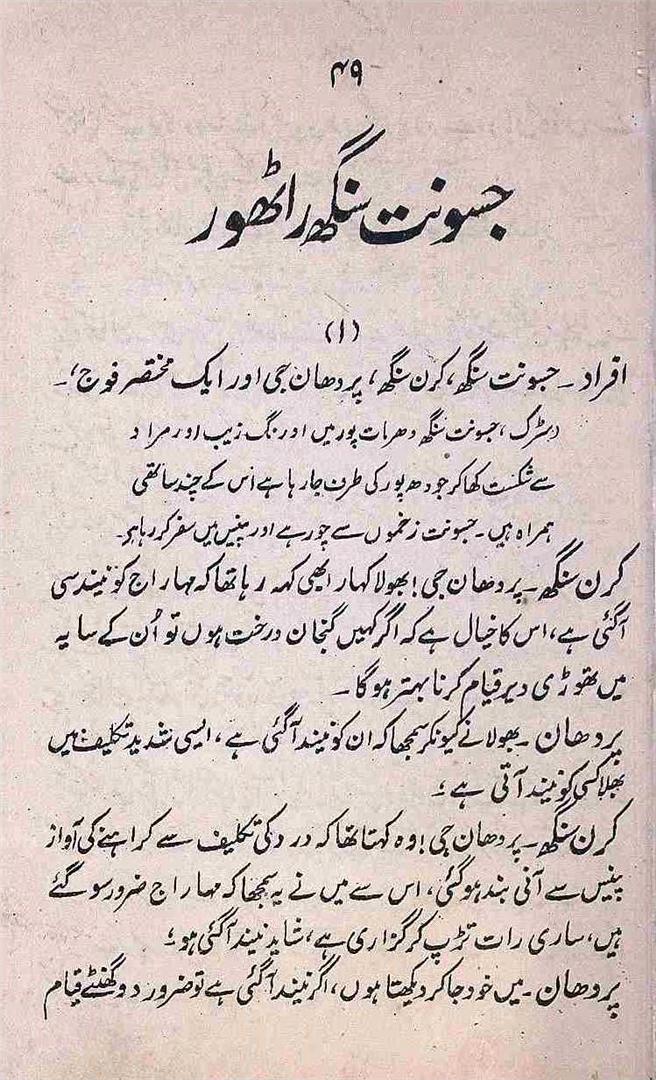 ۴۹
جسونت سنگھ راٹھور
(۱)
افراد ۔ جسونت سنگھ، کرن سنگھ، پردھان جی اور ایک مختصر فوج،۔
(سڑک، جسونت سنگھ دھرمات پور میں اورنگ زیب اور مراد
سے شکست کھا کر جودھ پور کی طرف جا رہا ہے اس کے چند ساتھی
ہمراہ ہیں۔ جسونت زخموں سے چور ہے اور پنیس میں سفر کر رہا ہو۔
کرن سنگھ ۔ پردھان جی! بھولا کہار ابھی کہہ رہا تھا کہ مہاراج کو نیند سی
آگئی ہے، اس کا خیال ہے کہ اگر کہیں گنجان درخت ہوں تو اُن کے سایہ
میں تھوڑی دیر قیام کرنا بہتر ہو گا ۔
پردھان ۔ بھولا نے کیونکر سمجھا کہ ان کو نیند آگئی ہے، ایسی شدید تکلیف میں
بھلا کسی کو نیند آتی ہے ؟
کرن سنگھ ۔ پردھان جی! وہ کہتا تھا کہ درد کی تکلیف سے کراہنے کی آواز
پنیس سے آنی بند ہو گئی، اس سے میں نے یہ سمجھا کہ مہاراج ضرور سو گئے
ہیں، ساری رات تڑپ کر گزاری ہے، شاید نیند آگئی ہو ؟
پردھان ۔ میں خود جا کر دیکھتا ہوں، اگر نیند آگئی ہے تو ضرور دو گھنٹے قیام